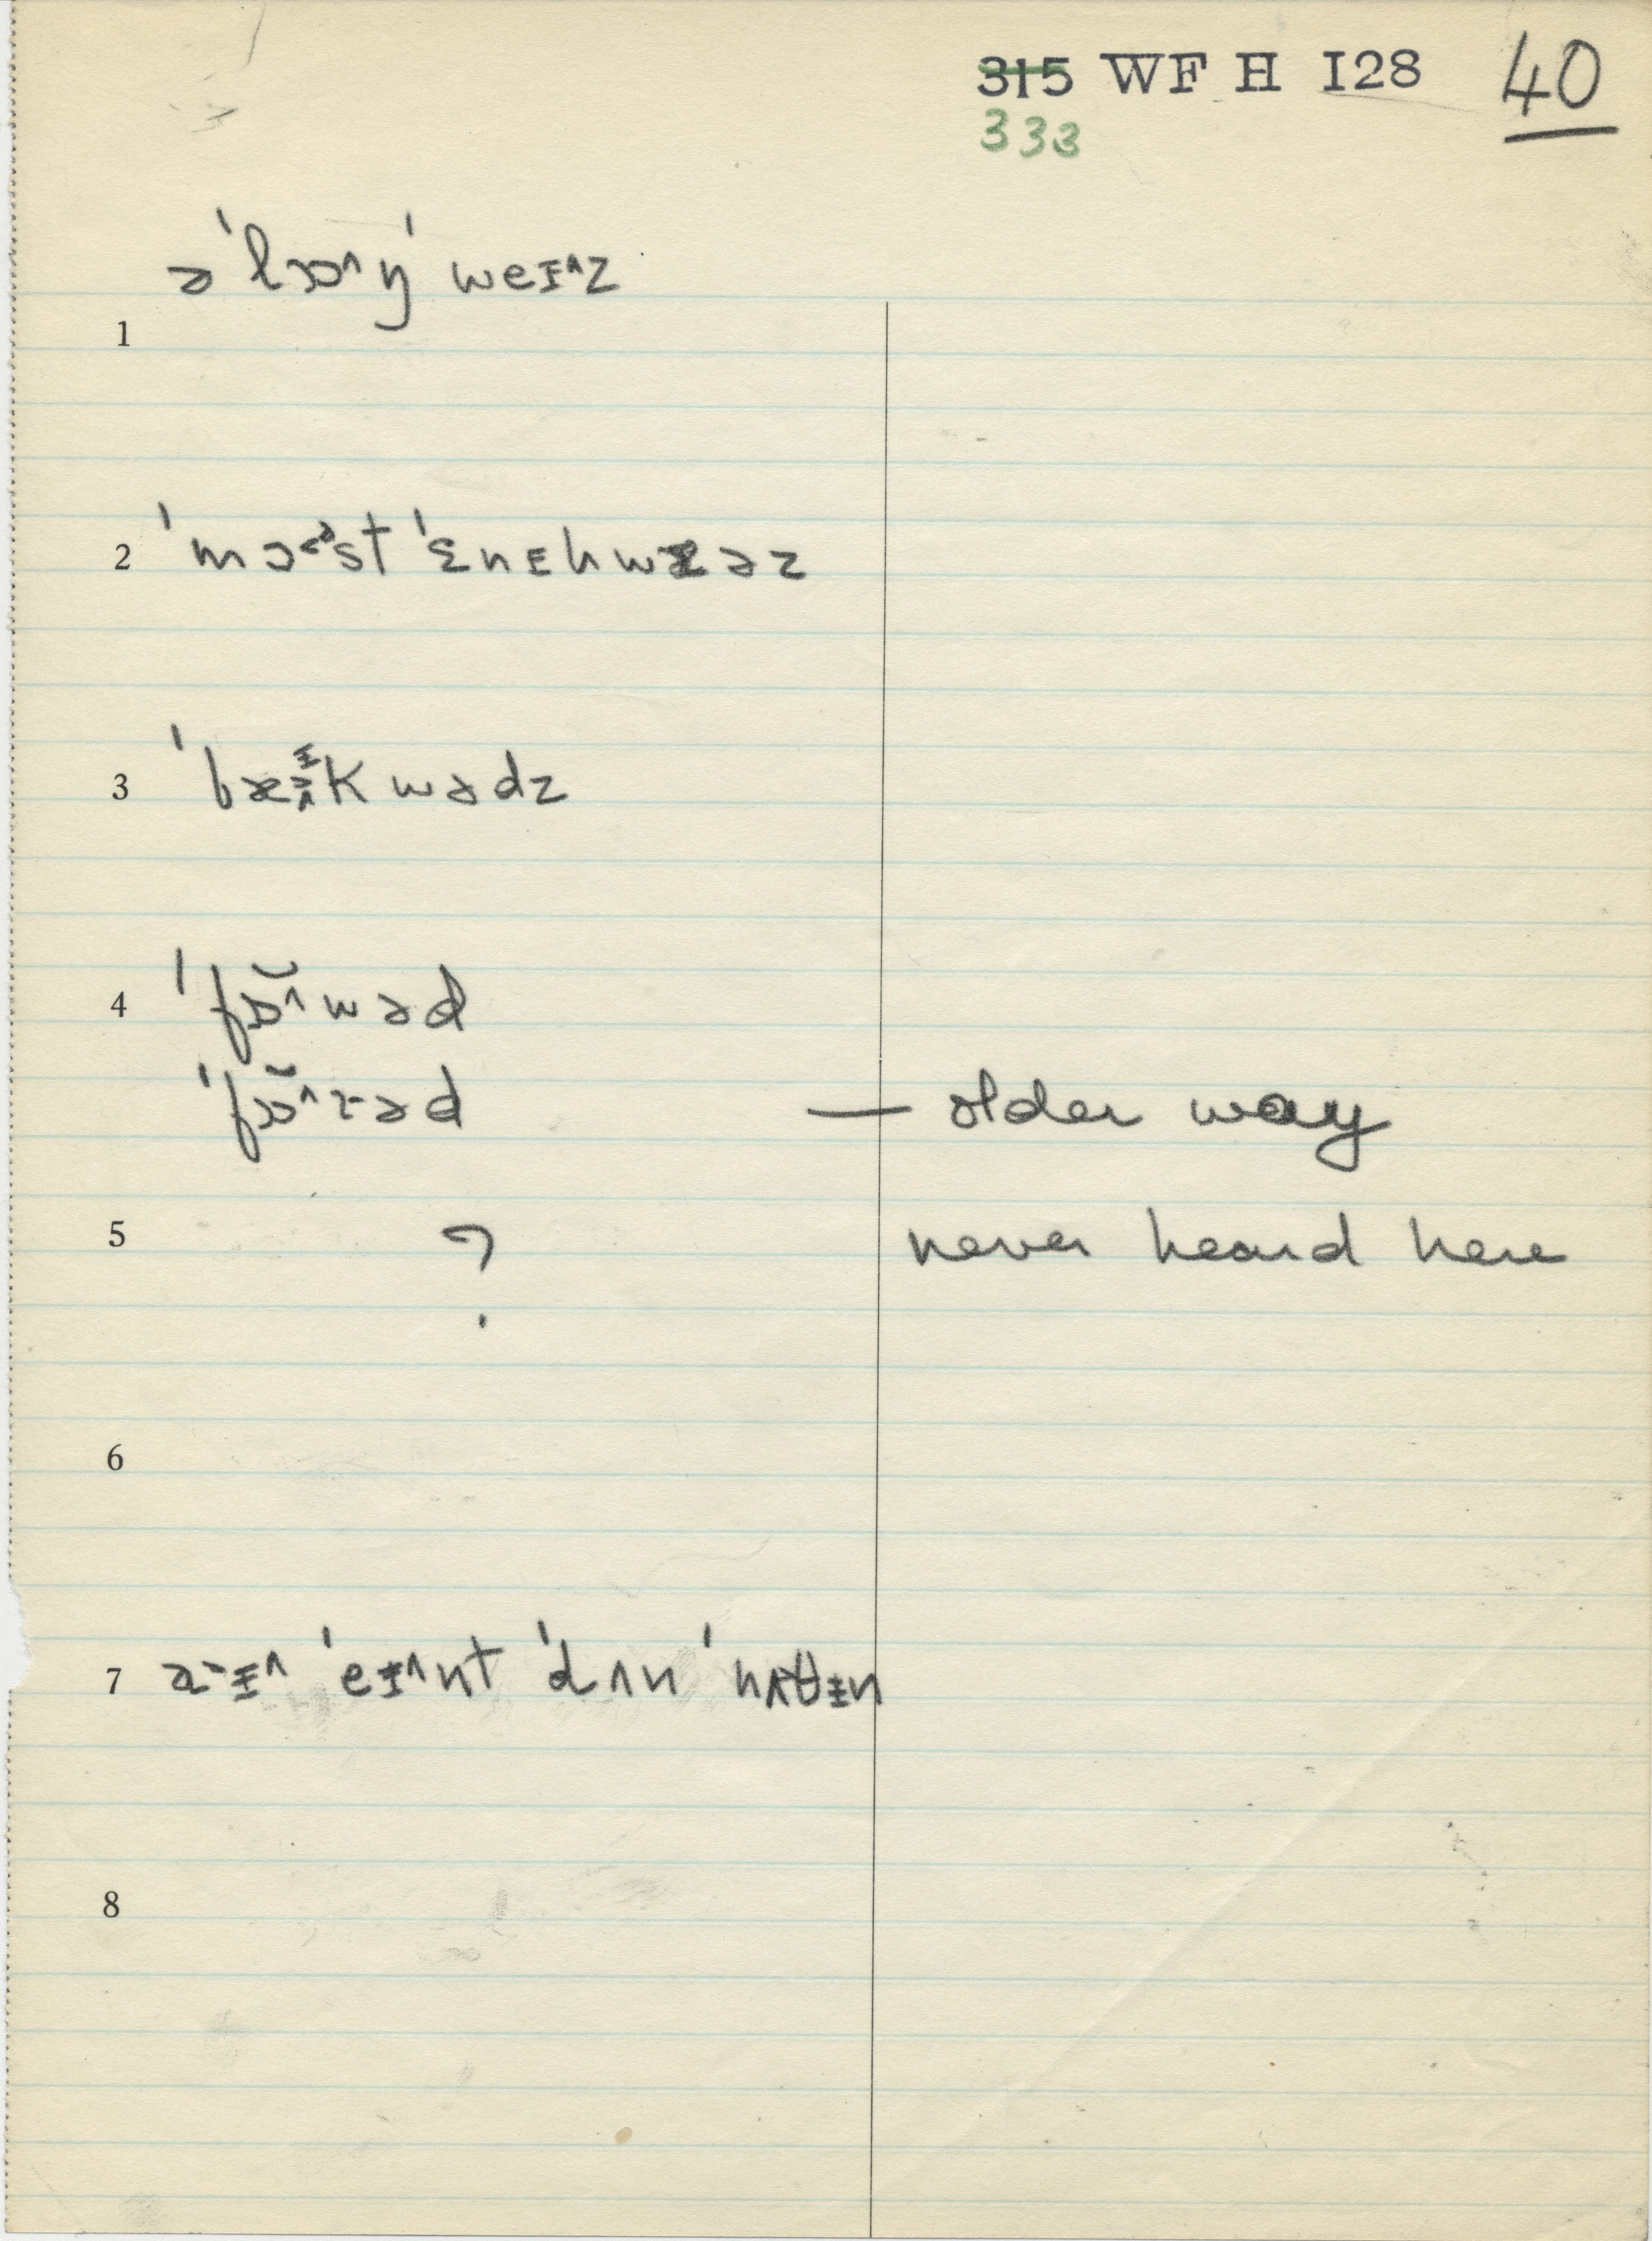 3̶1̶5̶ WF H I28 40
333
ə ˈlɔɒ^ŋ ˈweɪ^z
1
2 ˈmɔ˂ᵊst ˈɛnɪhwæəz
3 ˈbæᵻkwədz
4 ˈfɒ̆^wəd
ˈfɔɒ̆^rəd — older way
5 ? never heard here
6
7 ɪ^ ˈeɪ^nt ˈdʌn ˈnʌθɪn
8